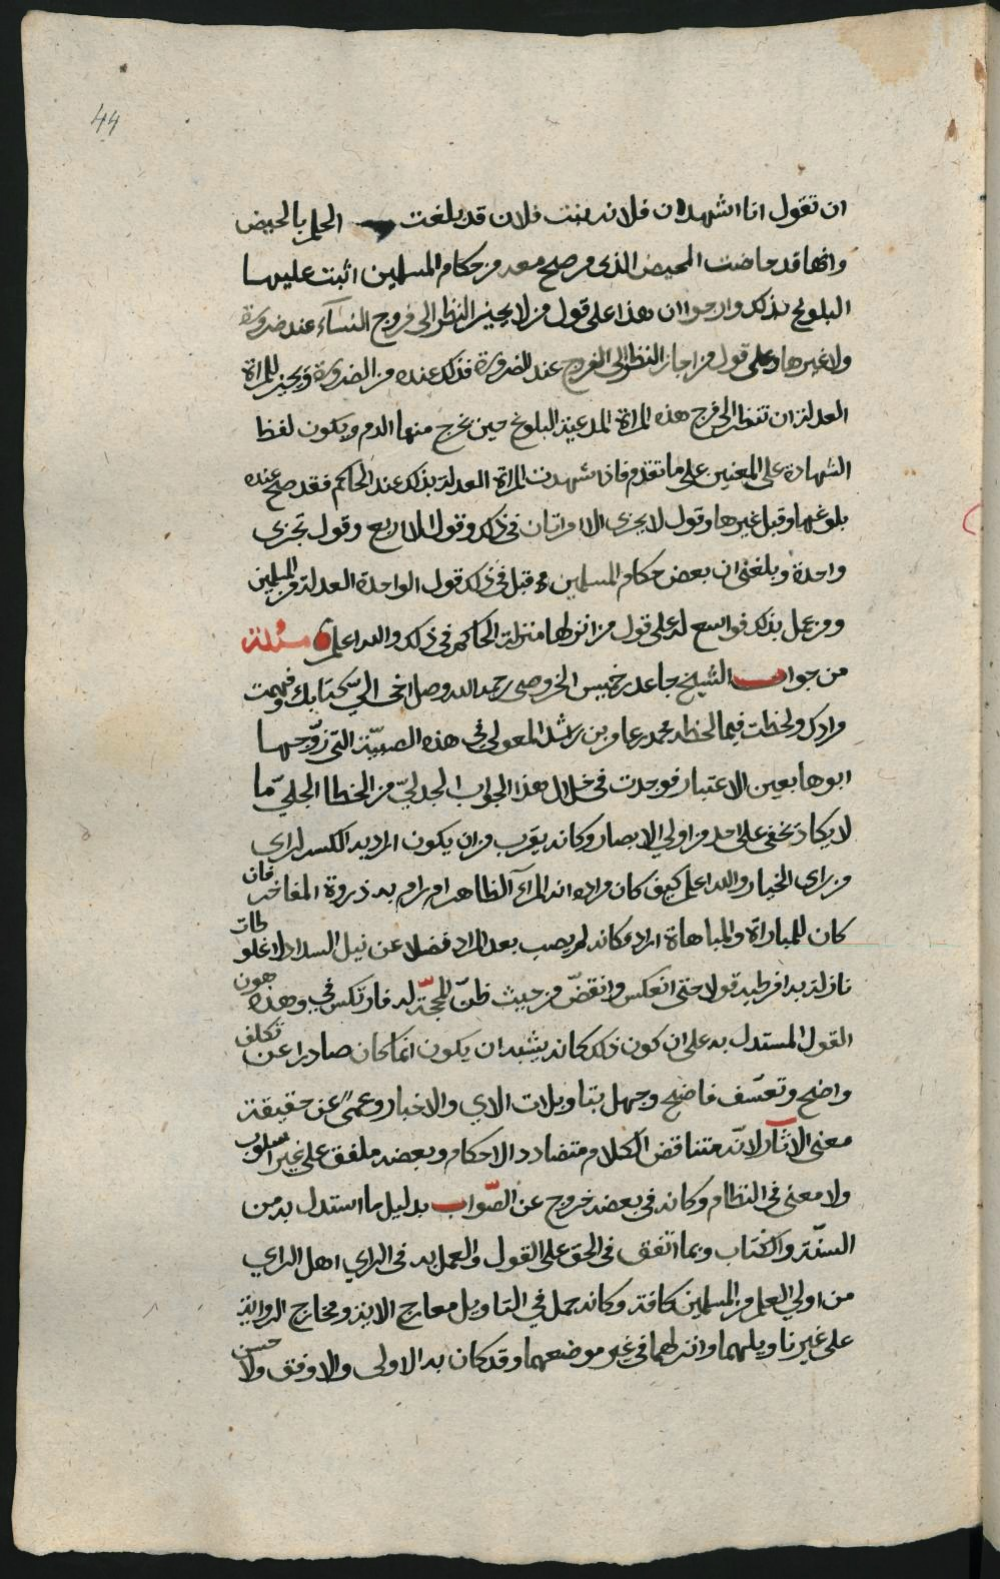 44
ان تقول انا اشهد ان فلانه بنت فلان قد بلغت الحلم بالحيض
وانها قد حاضت المحيض الذى من صح معه من حكام المسلمين اثبت عليها
البلوغ بذلك وارجوا ان هذا على قول من لا يجيز النظر الى فروج النسآء عند ضرورة
ولا غيرها وعلى قول من اجاز النظر الى الفروج عند الضرورة فذلك عنده من الضرورة ويجيز للمراة
العدلة ان تنظر الى فرج هذه المراة المدعية البلوغ حين يخرج منها الدم ويكون لفظ
الشهادة على المعنيين على ما تقدم فاذا شهدت المراة العدلة بذلك عند الحاكم فقد صح عنده
بلوغها وقيل غيرها وقول لا يجزى الا امراتان فى ذلك وقول الا اربع وقول تجزى
واحدة وبلغنى ان بعض حكام المسلمين قبل فى ذلك قول الواحدة العدلة من المسلمين
ومن عمل بذلك فواسع له على قول من انزلها منزلة الحاكم فى ذلك والله اعلم مسئلة
من جواب الشيخ جاعد بن خميس الخروصى رحمه الله وصل اخى الي كتابك وفهمت
مرادك ولحظت فيما لحظه محمد بن عامر بن راشد المعولي فى هذه الصبيّة التى زوّجها
ابوها بعين الاعتبار فوجدت فى خلال هذا الجواب الجدليّ من الخطا الجليّ ما
لا يكاد تخفى على احد من اولي الابصار وكانه يقرب من ان يكون المراد به الكسر لراى
من راى الخيار والله اعلم كيف كان مراده انه المرآء الظاهر ام رام به ذروة المفاخر فان
كان للمباراة والمباهاة اراد فكانه لم يصب بعد المراد فضلا عن نيل السداد لاغلوطات
نازلة به افرط به قولا حتى انعكس وانقضّ من حيث ظنّ الحجّة له فارتكس في وهذه هون
القول المستدل به على ان كون ذلك كانه يشبه ان يكون انما كان صادرا عن تكلف
واضح وتعسّف فاضح وجهل بتاويلات الاي والاخبار وعمىً عن حقيقة
معنى الآثار لانّه متناقض الكلام متضادد الاحكام وبعضه ملفق على غير اسلوب
ولا معنى فى النظام وكانه فى بعضه خروج عن الصّواب بدليل ما استدل به من
السنّة والكتاب وبما اتفق فى الحق على القول والعمل به فى الراي اهل الراي
من اولي العلم من المسلمين كافة وكانه حمل في التاويل معارج الاية ومخارج الرواية
على غير تاويلهما وانزلهما في غير موضعهما وقد كان به الاولى والاوفق والاحسن